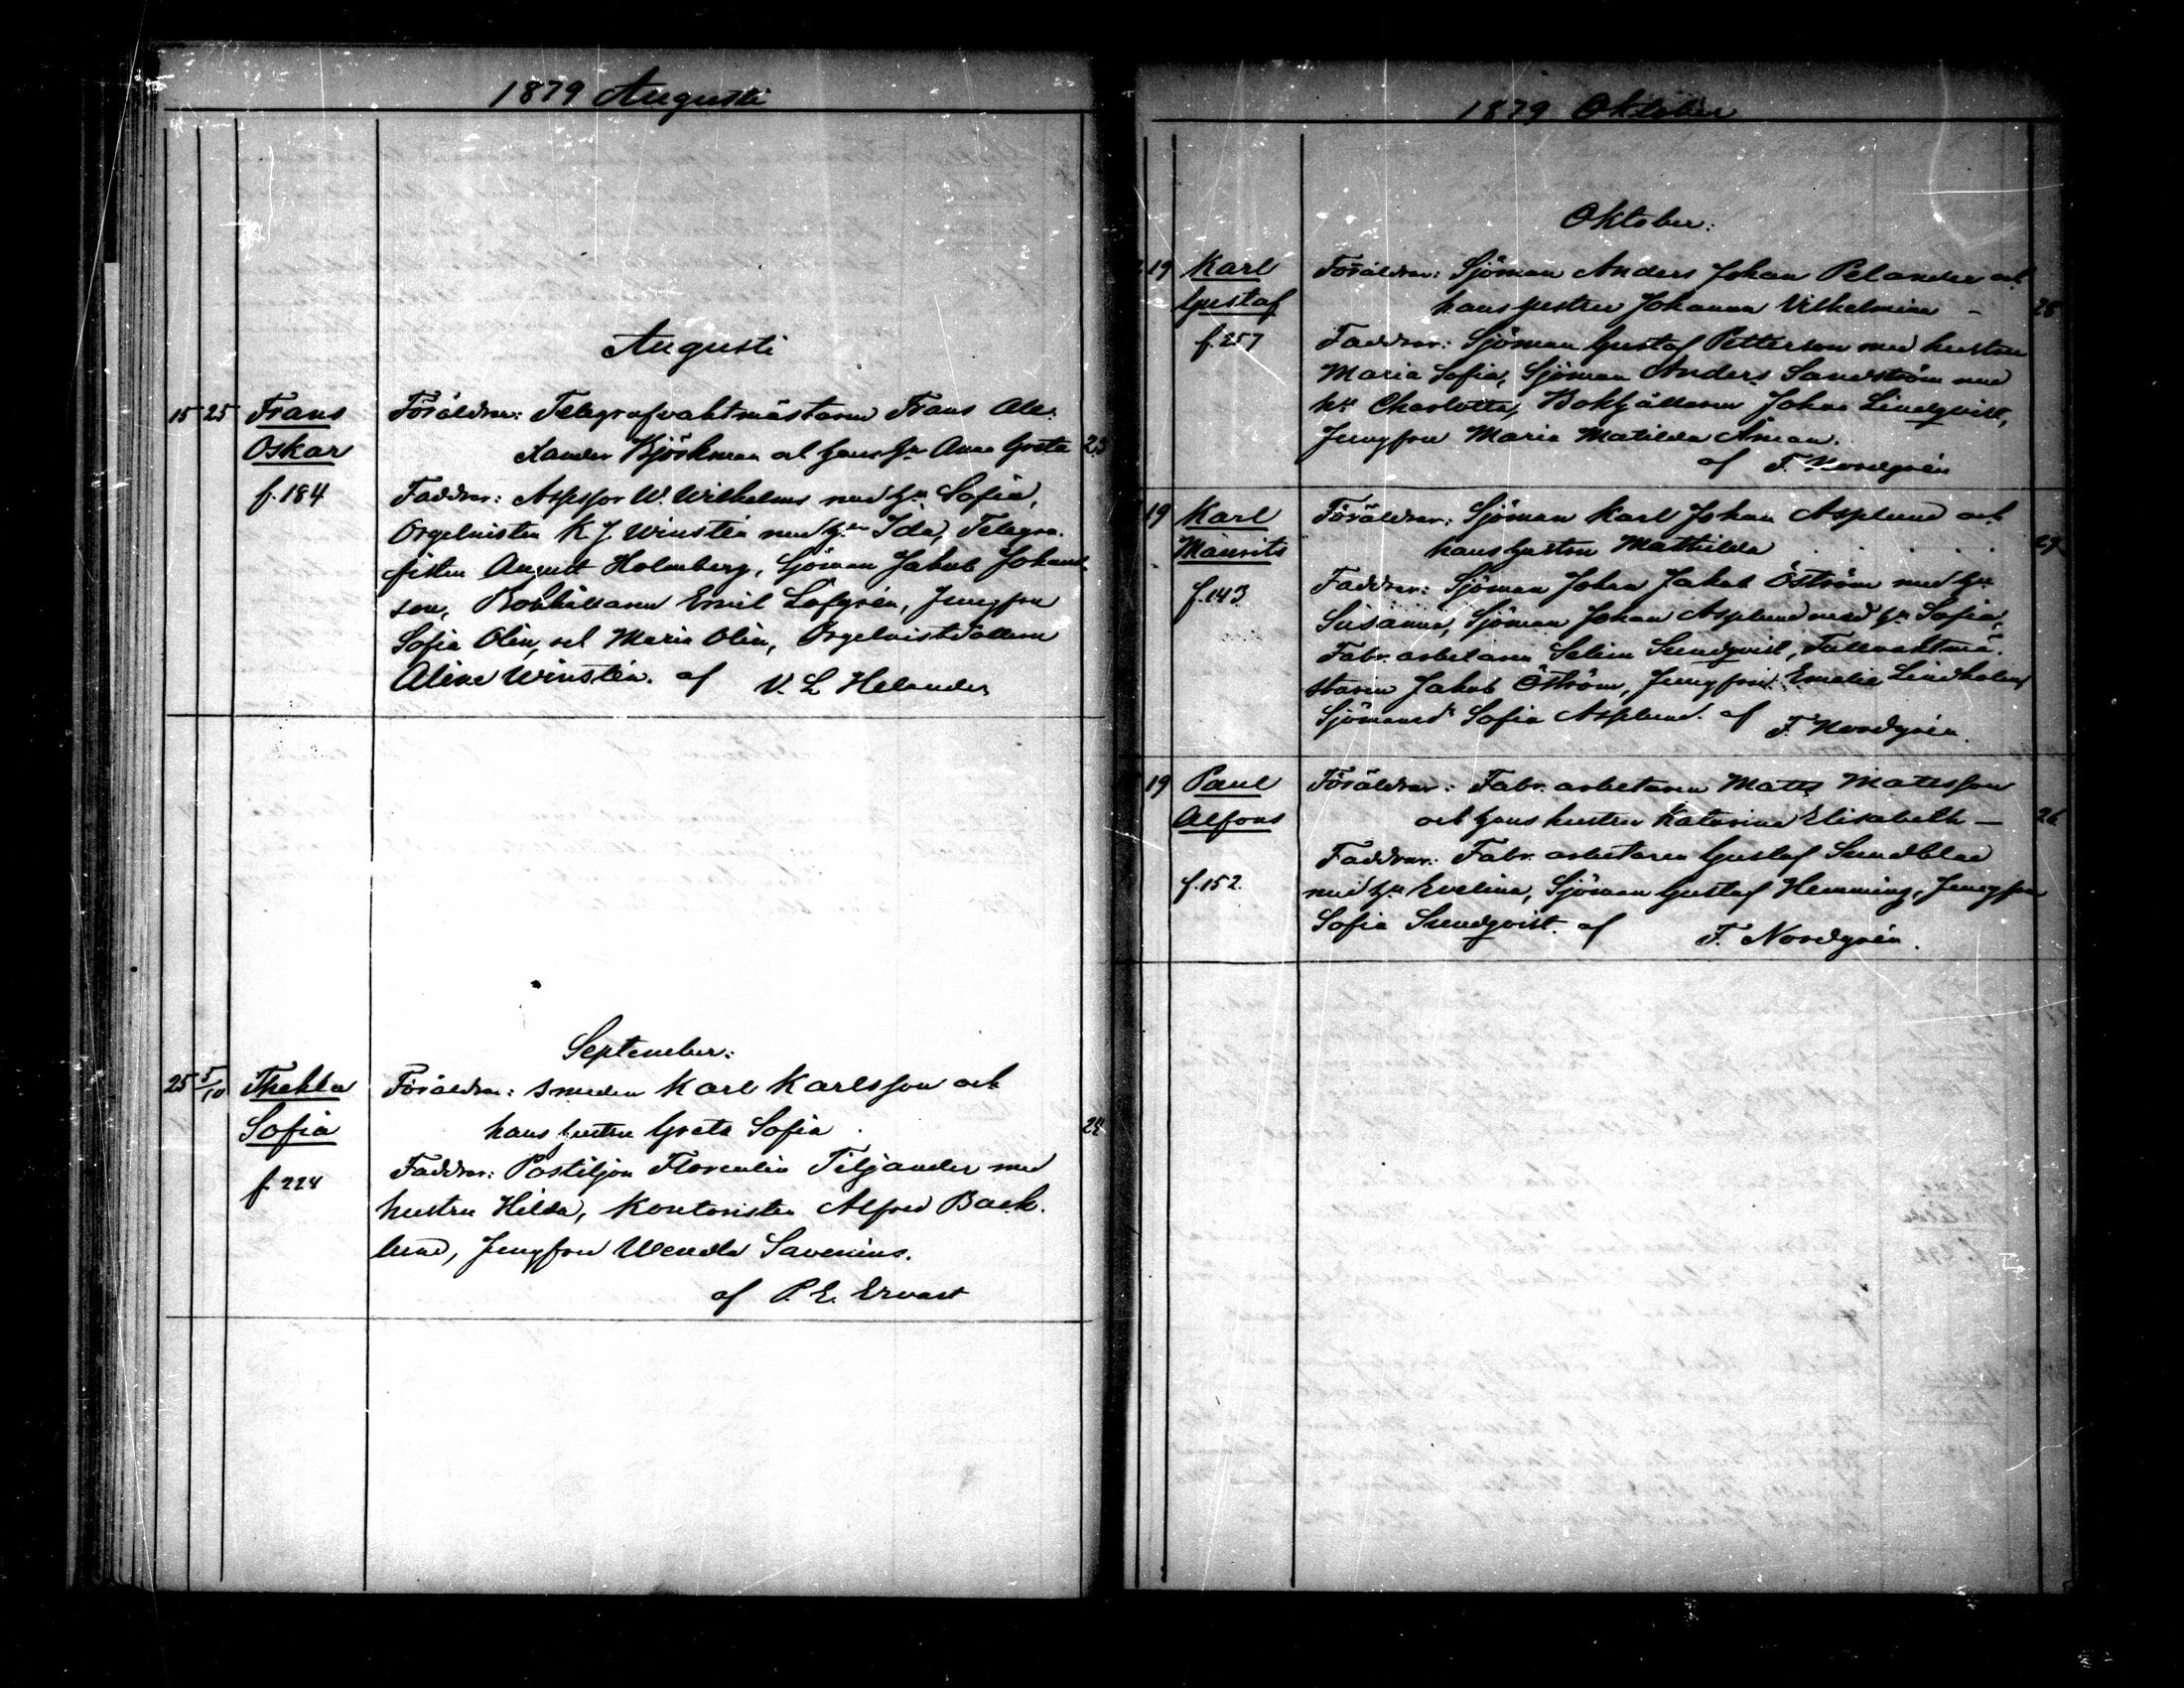 1879 Augusti
Augusti
15 25 Frans Föräldrar: Telegrafvaktmästaren Frans Alex:
Oskar xander Björkman och hans hu Anna Greta 23
f. 184 Faddrar: Assessor W. Wilhelms med hu Sofia,
Orgelnisten K J. Winstén med hu Ida, Telegra-
fisten August Holmberg, Sjöman Jakob Johans-
son, Bokhållaren Emil Löfgrén, Jungfru
Sofia Olin, och Maria Olin, Orgelnistdottern
Aline Winstén. af V. L Helander
September:
25 5/10 Thekla Föräldrar: smeden Karl Karlsson och
Sofia hans hustru Greta Sofia 24
f. 224 Faddrar: Postiljon Florentin Tiljander med
hustru Hilda, Kontoristen Alfred Back-
lund, Jungfru Wendla Savenius.
af P. E. Ervast
1879 Oktober
Oktober:
19 Karl Föräldrar: Sjöman Anders Johan Pelander och
Gustaf hans hustru Johanna Vilhelmina –
f. 257 Faddrar: Sjöman Gustaf Petterson med hustru
Maria Sofia, Sjöman Anders Sandström med
hu Charlotta, Bokhållaren Johan Lindqvist,
Jungfru Maria Matilda Åman.
af F. Nordgrén
19 Karl Föräldrar: Sjöman Karl Johan Asplund och
Maurits hans hustru Mathilda
f. 143 Faddrar: Sjöman Johan Jakob Öström med hu
Susanna, Sjöman Johan Asplund med hu Sofia,
Fabr. arbetaren Selim Sundqvist, Tullvaktmä-
staren Jakob Öström, Jungfru Emelie Lindholm,
Sjömansd. Sofia Asplund. af F. Nordgrén.
19 Paul Föräldrar: Fabr. arbetaren Matts Mattsson
Alfons och hans hustru Katarina Elisabeth – 26
Faddrar: Fabr. arbetaren Gustaf Sundblad
f. 152. med hu Evelina, Sjöman Gustaf Hemming, Jungfru
Sofia Sundqvist. af F. Nordgrén.